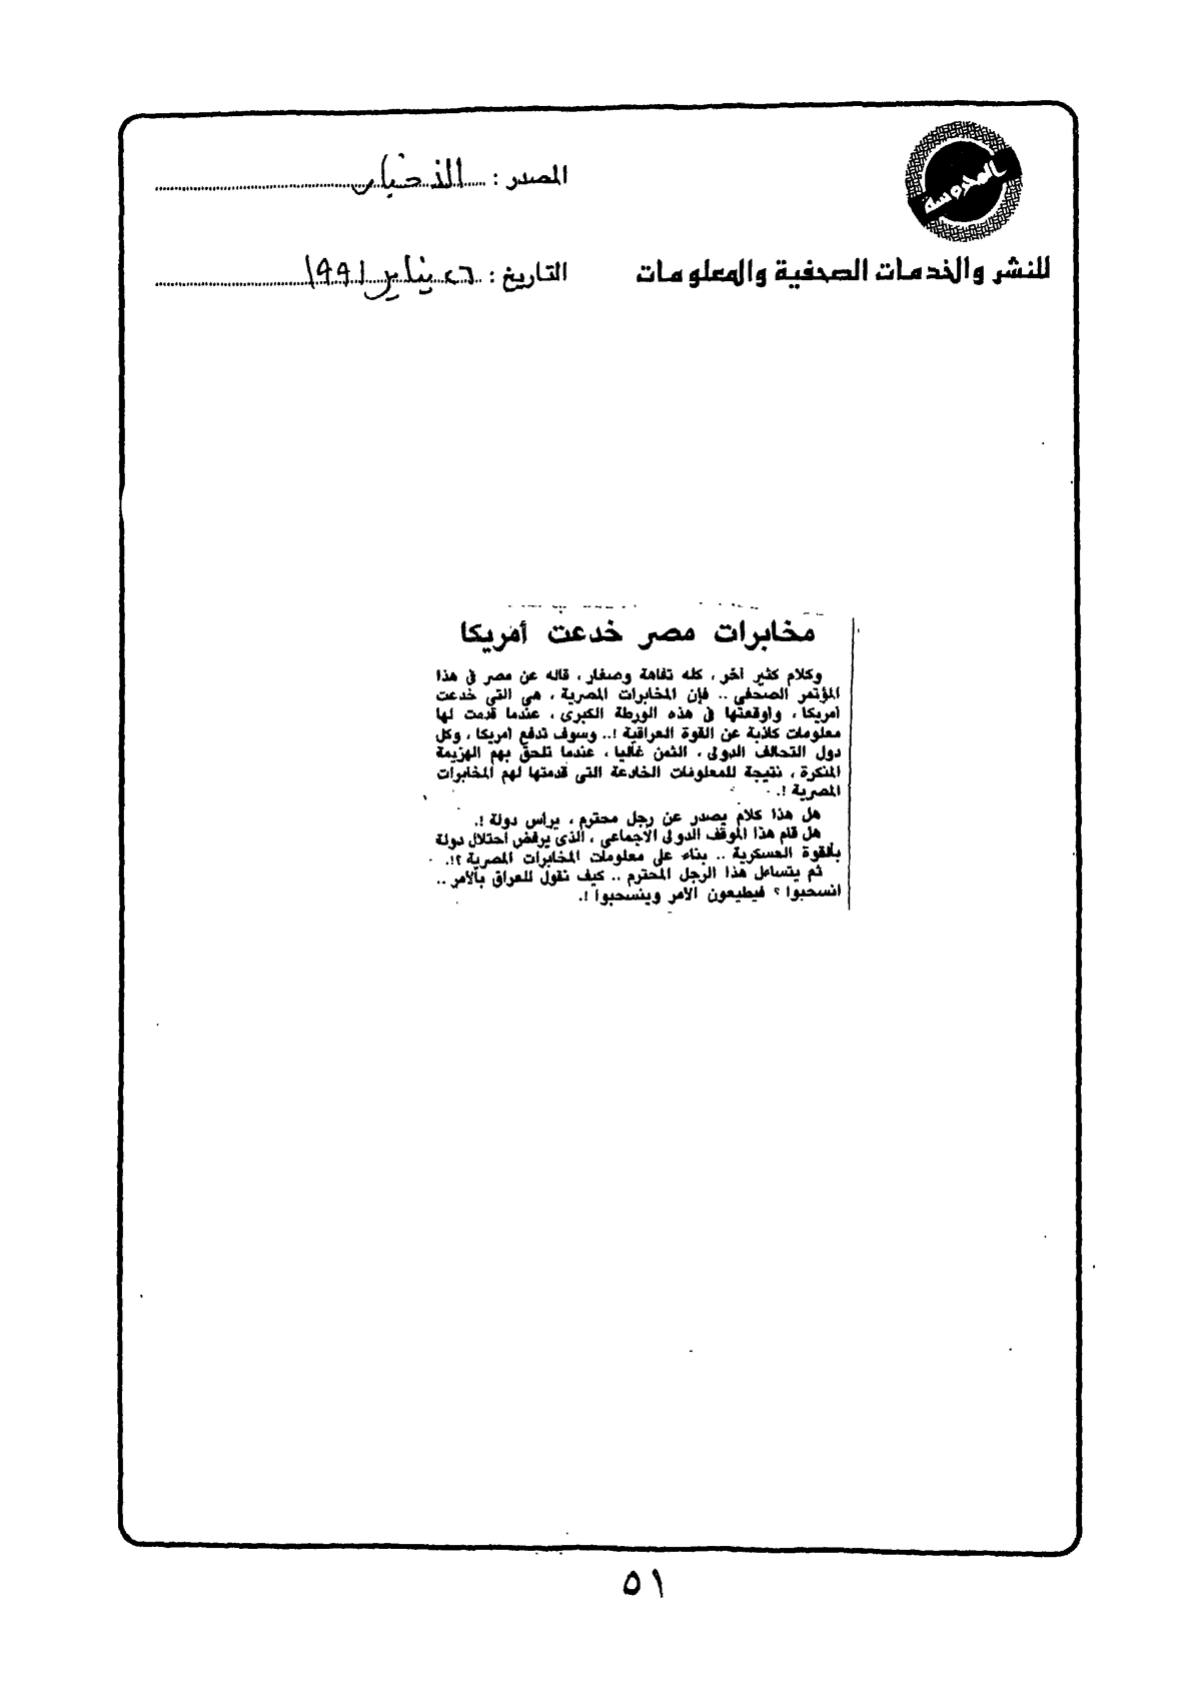 المحروسة
للنشر والخدمات الصحفية والمعلومات
المصدر : الأخبار
التاريخ : ٢٦ يناير ١٩٩١
مخابرات مصر خدعت أمريكا
وكلام كثير آخر ، كله تفاهة وصغار ، قاله عن مصر فى هذا
المؤتمر الصحفى .. فإن المخابرات المصرية ، هى التى خدعت
أمريكا ، وأوقعتها فى هذه الورطة الكبرى ، عندما قدمت لها
معلومات كاذبة عن القوة العراقية !.. وسوف تدفع أمريكا ، وكل
دول التحالف الدولى ، الثمن غاليا ، عندما تلحق بهم الهزيمة
المنكرة ، نتيجة للمعلومات الخادعة التى قدمتها لهم المخابرات
المصرية !.
هل هذا كلام يصدر عن رجل محترم ، يرأس دولة !.
هل قام هذا الموقف الدولى الاجماعى ، الذى يرفض احتلال دولة
بالقوة العسكرية .. بناء على معلومات المخابرات المصرية ؟!.
ثم يتساءل هذا الرجل المحترم .. كيف نقول للعراق بالأمر ..
انسحبوا ؟ فيطيعون الأمر وينسحبوا !.
٥١